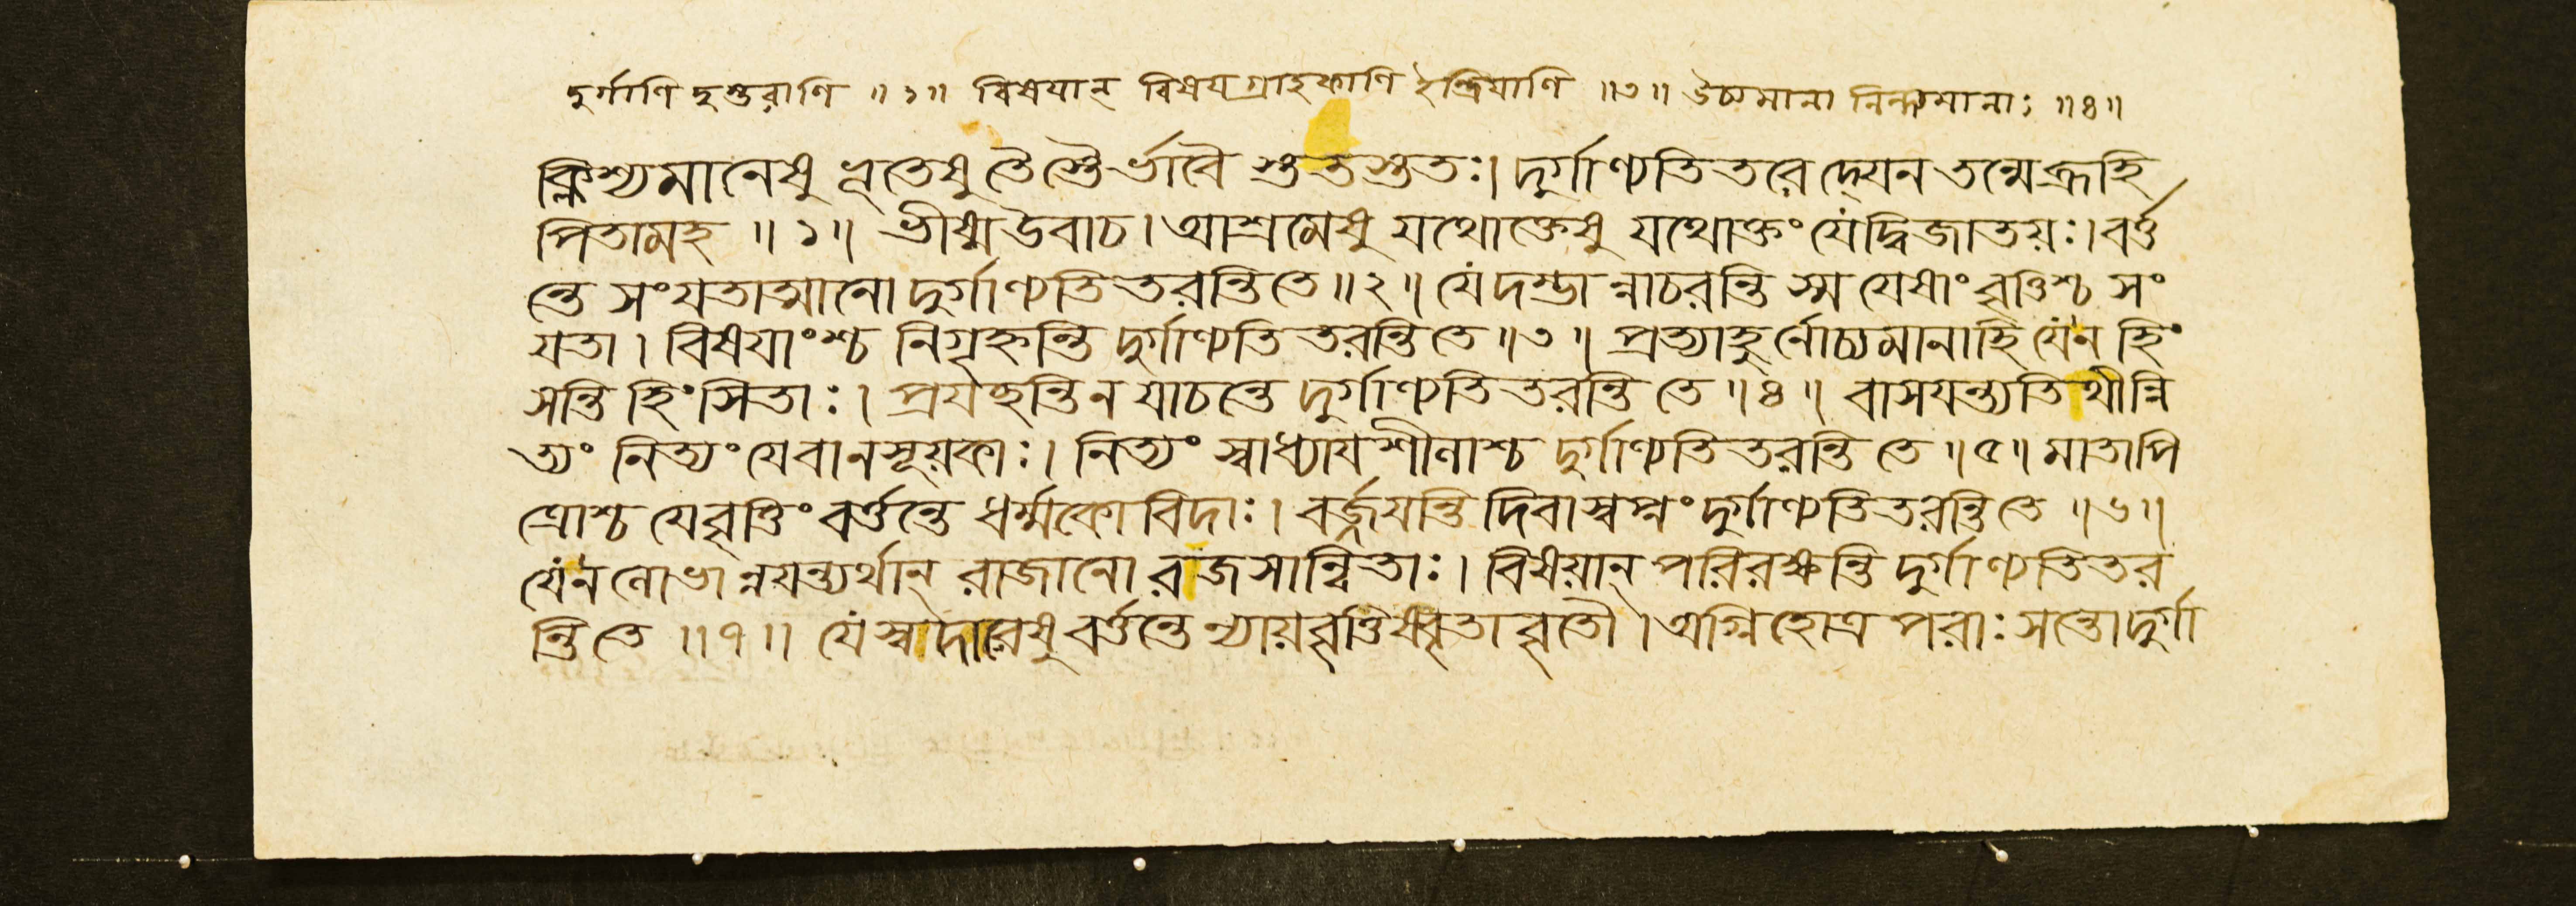 দুর্গাণি দুস্তরাণি ॥ ১॥ বিষয়ান্ বিষয়গ্রাহকাণি ইন্দ্রিয়াণি ॥৩॥ উচ্যমানা নিন্দ্যমানাঃ ॥৪॥
ক্লিশ্যমানেষু ভূতেষু তৈস্তৈর্ভাবৈ স্তুতস্তুতঃ। দুর্গাণ্যতিতরেদ্যেন তন্মেব্রূহি
পিতামহ ॥ ১॥ ভীষ্ম উবাচ। আশ্রমেষু যথোক্তেষু যথোক্তং যেদ্বিজাতয়ঃ। বর্ত্ত
ন্তে সংযতাত্মানো দুর্গাণ্যতিতরন্তিতে॥ ২॥ যেদম্ভান্নাচরন্তি স্ম যেষাং বৃত্তিশ্চ সং
যতা। বিষয়াংশ্চ নিগৃহ্নন্তি দুর্গাণ্যতিতরন্তিতে ॥৩॥ প্রত্যাহুর্নোচ্যমানাহি যেন হিং
সন্তি হিংসিতাঃ। প্রযচ্ছন্তি ন যাচন্তে দুর্গাণ্যতিতরন্তি তে ॥৪॥ বাসযন্ত্যতিথীন্নি
ত্যং নিত্যং যেবানসূয়কাঃ। নিত্যং স্বাধ্যায়শীলাশ্চ দুর্গাণ্যতিতরন্তি তে ॥৫॥ মাতাপি
ত্রোশ্চ যেবৃত্তিং বর্ত্তন্তে ধর্ম্মকোবিদাঃ। বর্জ্জয়ন্তি দিবাস্বপ্নং দুর্গাণ্যতিতরন্তিতে ॥৬॥
যেন লোভান্নয়ন্ত্যর্থান্ রাজানো রজসান্বিতাঃ। বিষয়ান্ পরিরক্ষন্তি দুর্গাণ্যতিতর
ন্তিতে ॥৭॥ যে স্বদারেষু বর্ত্তন্তে ন্যায়বৃত্তি মৃতাবৃতৌ। অগ্নিহোত্র পরাঃ সন্তো দুর্গা